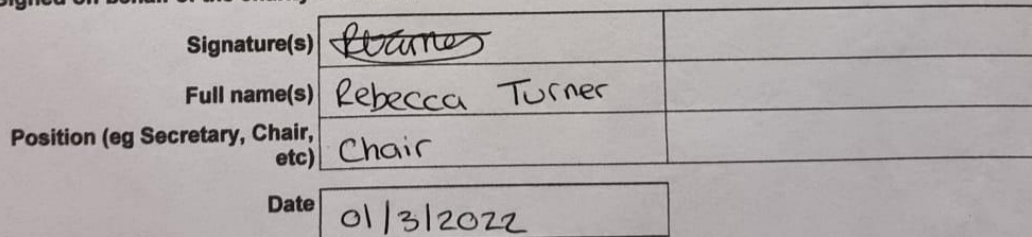 Signature(s)
Full name(s) Rebecca Turner
Position (eg Secretary, Chair,
etc) Chair
Date 01/3/2022